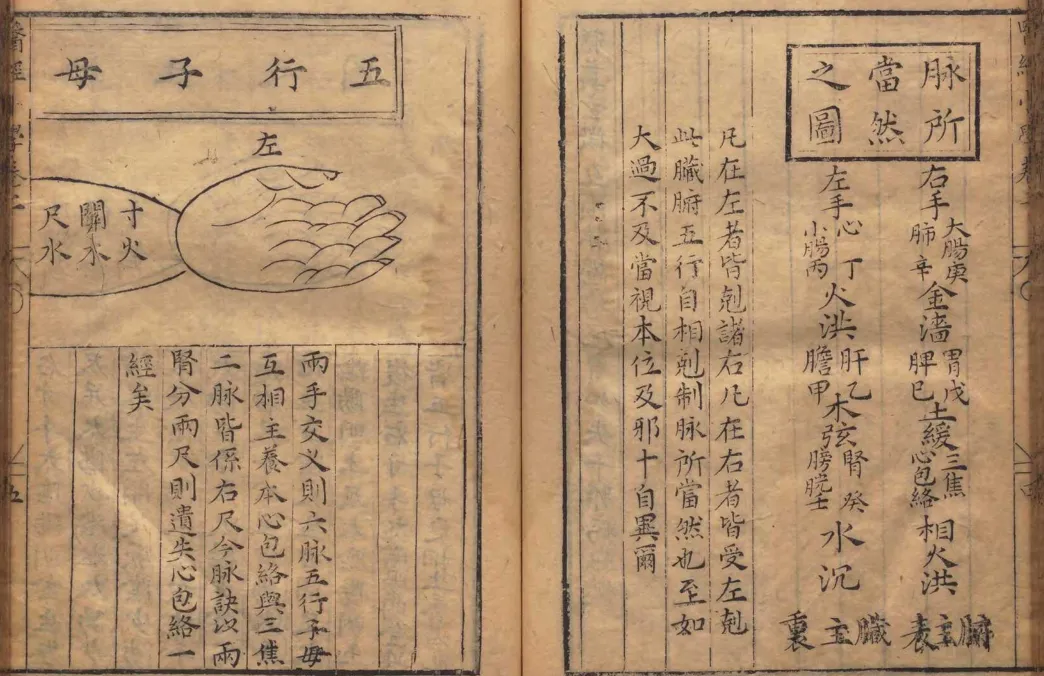 脉所
當然
之圖
右手 大腸庚 肺辛 金濇 胃戊 脾巳 土緩 三焦 心包絡 相火洪 腑主表
左手 心丁 小腸丙 火洪 肝乙 膽甲 木弦 腎癸 膀胱壬 水沉 臟主裏
凡在左者皆剋諸右凡在右者皆受左剋
此臟腑五行自相剋制脉所當然也至如
大過不及當視本位及邪十自異爾
五行子母
左
寸火
關木
尺水
兩手交义則六脉五行子母
互相主養本心包絡與三焦
二脉皆係右尺今脉訣以兩
腎分兩尺則遺失心包絡一
經矣